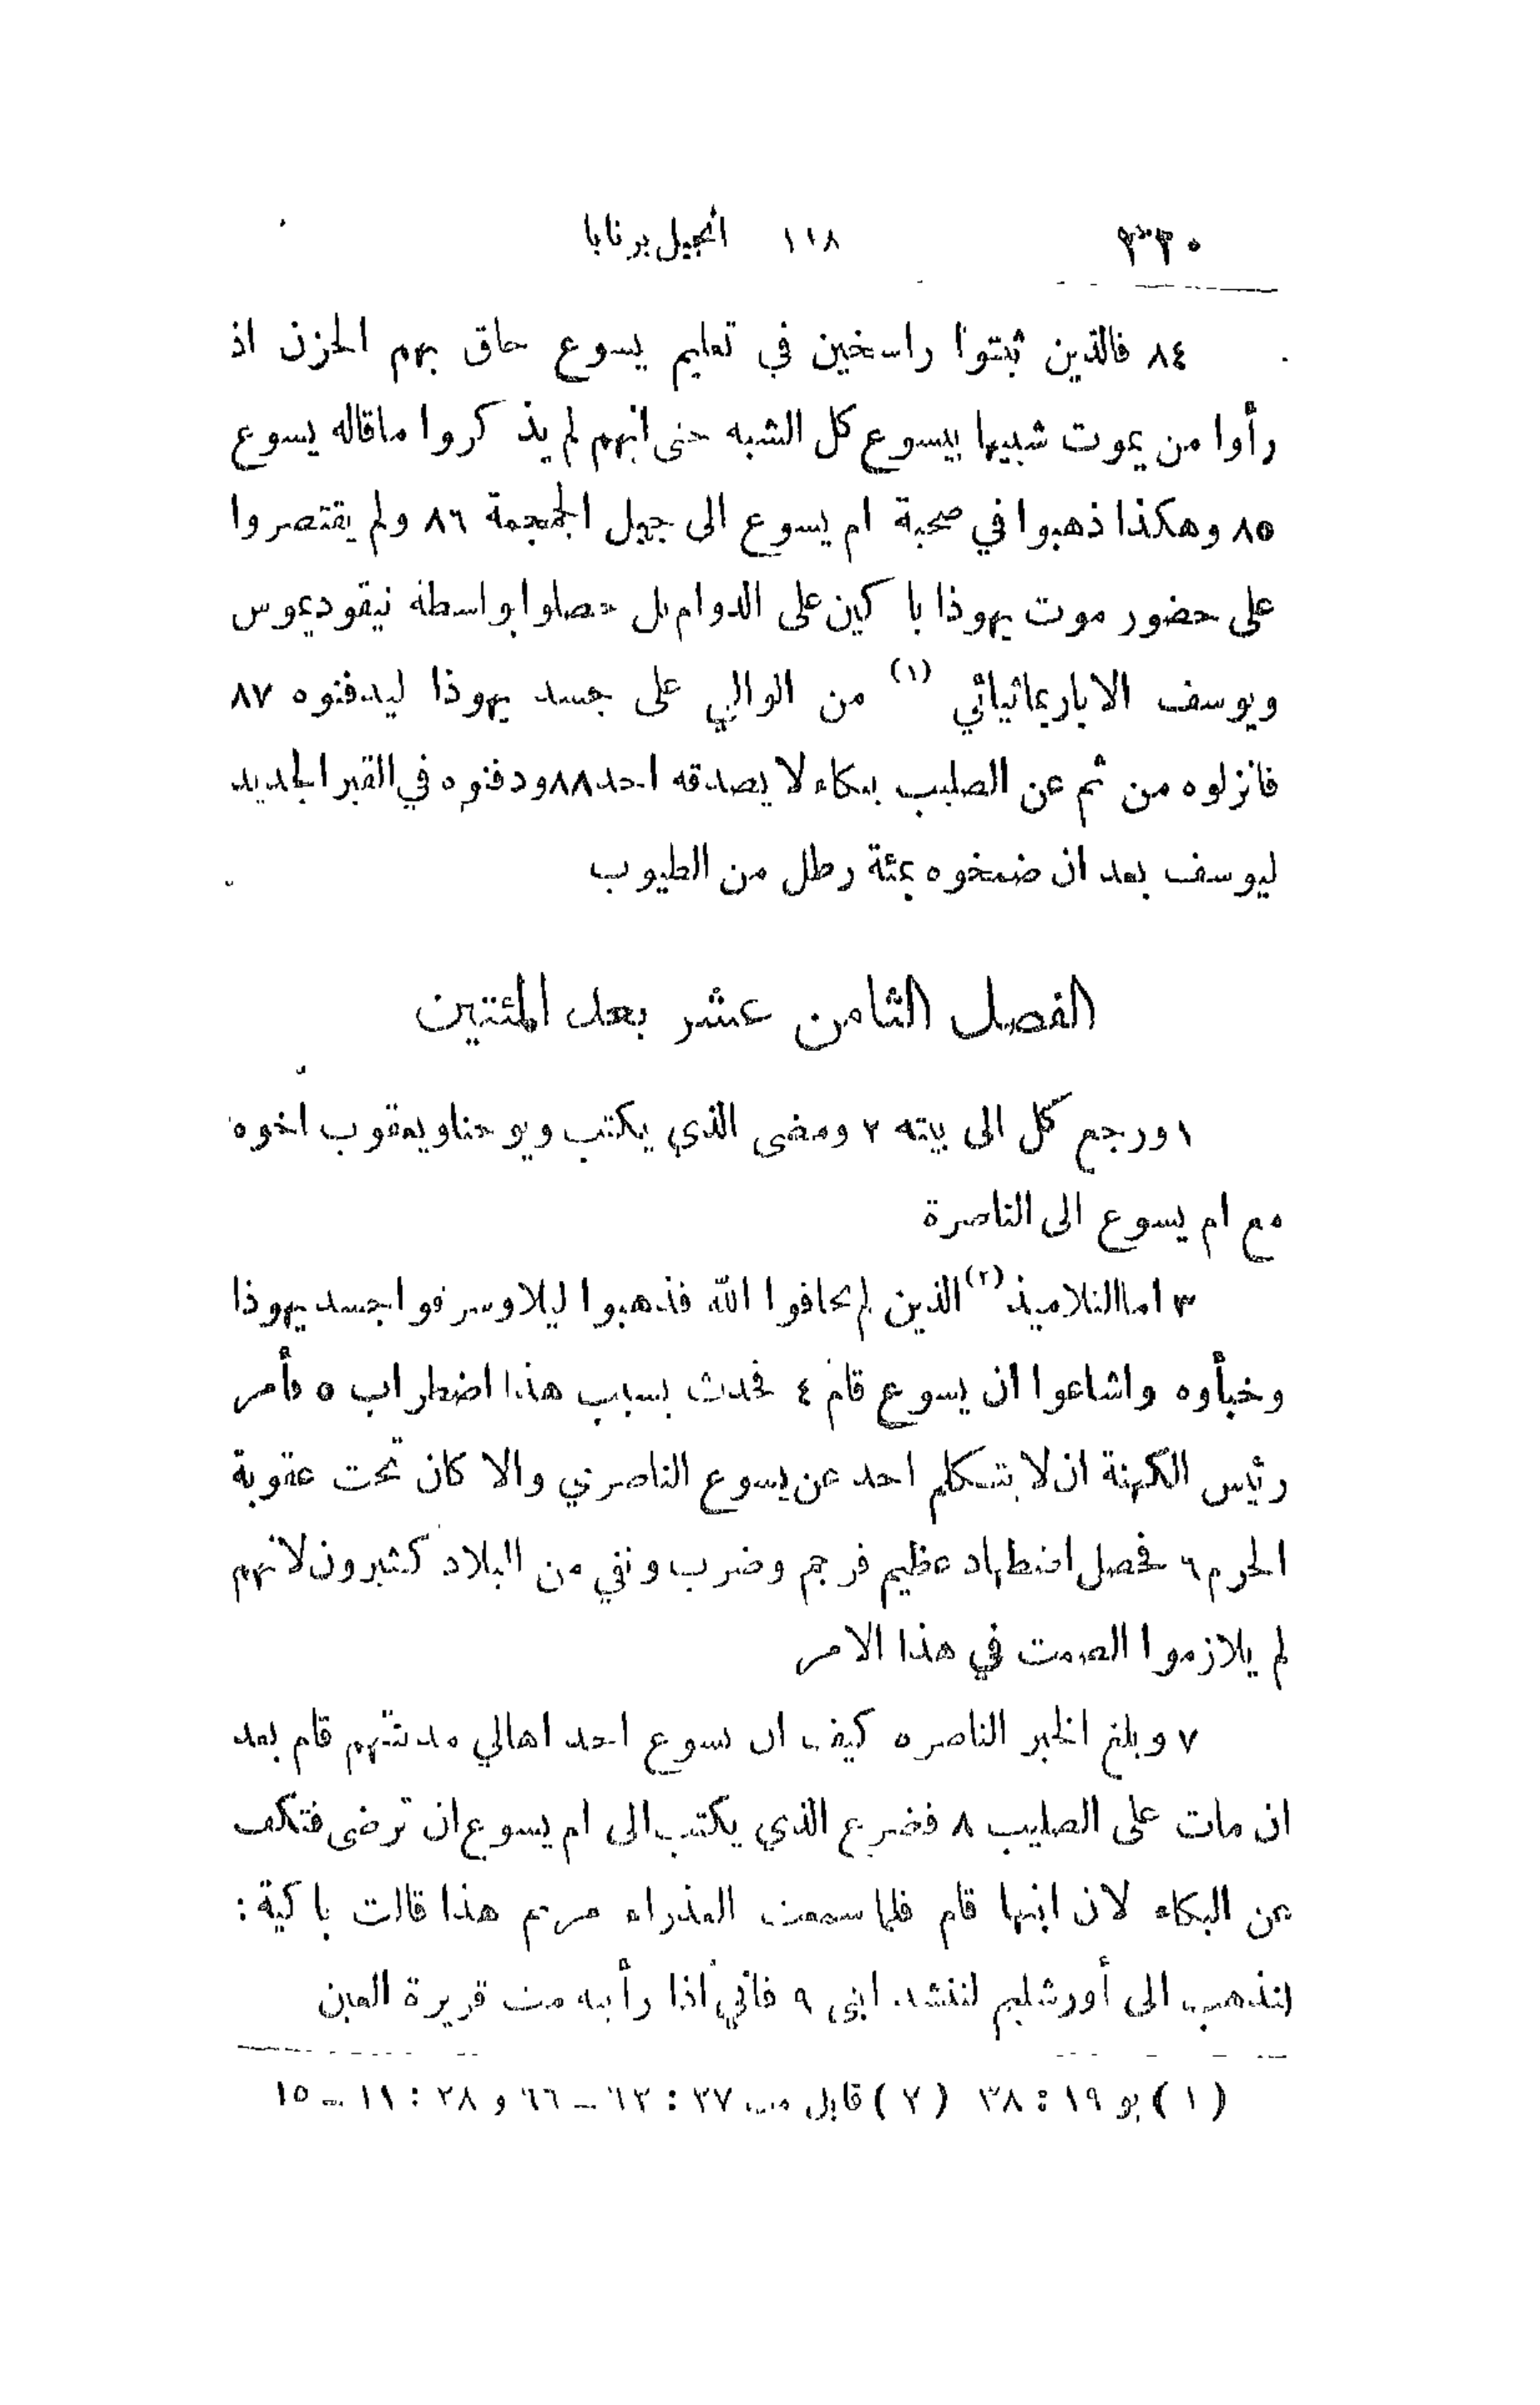 ٣٣٠ ١١٨ انجيل برنابا
٨٤ فالذين ثبتوا راسخين في تعليم يسوع حاق بهم الحزن اذ
رأوا من يموت شبيها بيسوع كل الشبه حتى انهم لم يذكروا ماقاله يسوع
٨٥ وهكذا ذهبوا في صحبة ام يسوع الى جبل الجمجمة ٨٦ ولم يقتصروا
على حضور موت يهوذا باكين على الدوام بل حصلوا بواسطة نيقوديموس
ويوسف الاباريماثيائي (١) من الوالي على جسد يهوذا ليدفنوه ٨٧
فانزلوه من ثم عن الصليب ببكاء لا يصدقه احد ٨٨ ودفنوه في القبر الجديد
ليوسف بعد ان ضمخوه بمئة رطل من الطيوب
الفصل الثامن عشر بعد المئتين
١ ورجع كل الى بيته ٢ ومضى الذي يكتب ويوحنا ويعقوب اخوه
مع ام يسوع الى الناصرة
٣ اما التلاميذ (٢) الذين لم يخافوا الله فذهبوا ليلا وسرقوا جسد يهوذا
وخبأوه واشاعوا ان يسوع قام ٤ فحدث بسبب هذا اضطراب ٥ فأمر
رئيس الكهنة ان لا يتكلم احد عن يسوع الناصري والا كان تحت عقوبة
الحرم ٦ فحصل اضطهاد عظيم فرجم وضرب ونفي من البلاد كثيرون لانهم
لم يلازموا الصمت في هذا الامر
٧ وبلغ الخبر الناصره كيف ان يسوع احد اهالي مدينتهم قام بعد
ان مات على الصليب ٨ فضرع الذي يكتب الى ام يسوع ان ترضى فتكف
عن البكاء لان ابنها قام فلما سمعت العذراء مريم هذا قالت باكية :
لنذهب الى أورشليم لننشد ابنى ٩ فاني اذا رأيته مت قريرة العين
(١) يو ١٩ : ٣٨ (٢) قابل مت ٢٧ : ٦٢ ــ ٦٦ و ٢٨ : ١١ ــ ١٥